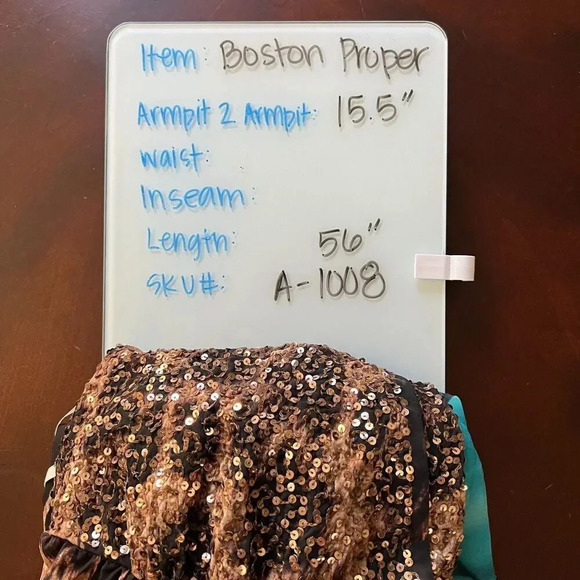 Item: Boston Proper
Armpit 2 Armpit: 15.5"
Waist:
Inseam:
Length: 56"
SKU#: A-1008